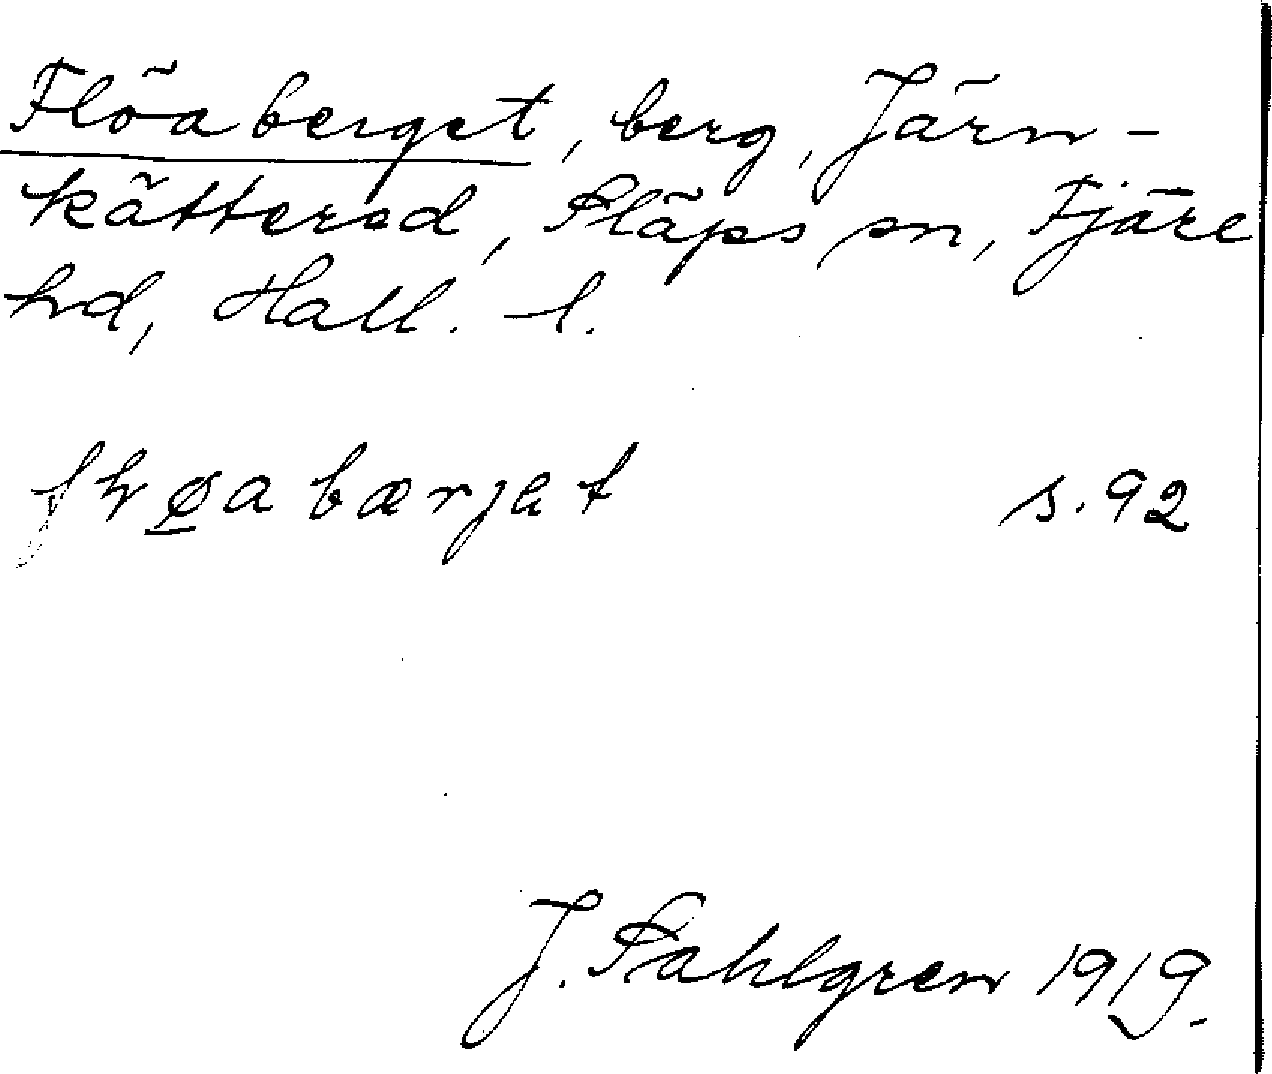 Flöaberget, berg, Järn-
kättered, Släps sn, Fjäre
hd, Hall. l.
s. 92
J. Sahlgren 1919.